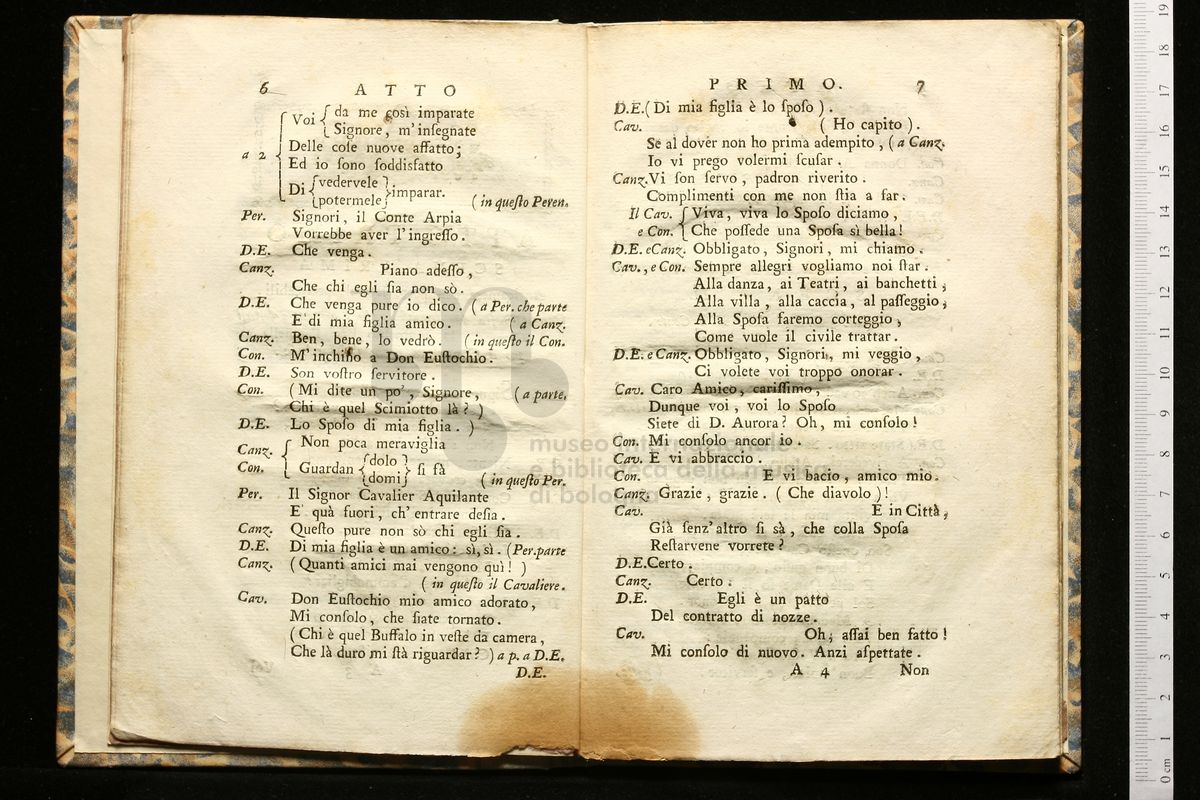 6 ATTO
a 2 Voi { da me così imparate
Signore, m' insegnate
Delle cose nuove affatto;
Ed io sono soddisfatto
Di { vedervele } imparar.
potermele
( in questo Peren.
Per. Signori, il Conte Arpia
Vorrebbe aver l' ingresso.
D.E. Che venga.
Canz. Piano adesso,
Che chi egli sia non sò.
D.E. Che venga pure io dico. ( a Per. che parte
E' di mia figlia amico. ( a Canz.
Canz. Ben, bene, lo vedrò. ( in questo il Con.
Con. M' inchino a Don Eustochio.
D.E. Son vostro servitore.
Con. ( Mi dite un po', Signore, ( a parte.
Chi è quel Scimiotto là? )
D.E. Lo Sposo di mia figlia. )
Canz. { Non poca meraviglia
Con. Guardan { dolo } si fà
domi
( in questo Per.
Per. Il Signor Cavalier Aquilante
E' quà fuori, ch' entrare desia.
Canz. Questo pure non sò chi egli sia.
D.E. Di mia figlia è un amico: sì, sì. ( Per. parte
Canz. ( Quanti amici mai vengono quì! )
( in questo il Cavaliere.
Cav. Don Eustochio mio amico adorato,
Mi consolo, che siate tornato.
( Chi è quel Buffalo in veste da camera,
Che là duro mi stà riguardar? ) a p. a D.E.
D.E.
PRIMO. 7
D.E. ( Di mia figlia è lo sposo ).
Cav. ( Ho capito ).
Se al dover non ho prima adempito, ( a Canz.
Io vi prego volermi scusar.
Canz. Vi son servo, padron riverito.
Complimenti con me non stia a far.
Il Cav. { Viva, viva lo Sposo diciamo,
e Con. Che possede una Sposa sì bella!
D.E. e Canz. Obbligato, Signori, mi chiamo.
Cav., e Con. Sempre allegri vogliamo noi star.
Alla danza, ai Teatri, ai banchetti;
Alla villa, alla caccia, al passeggio;
Alla Sposa faremo corteggio,
Come vuole il civile trattar.
D.E. e Canz. Obbligato, Signori, mi veggio,
Ci volete voi troppo onorar.
Cav. Caro Amico, carissimo,
Dunque voi, voi lo Sposo
Siete di D. Aurora? Oh, mi consolo!
Con. Mi consolo ancor io.
Cav. E vi abbraccio.
Con. E vi bacio, amico mio.
Canz. Grazie, grazie. ( Che diavolo )!
Cav. E in Città,
Già senz' altro si sà, che colla Sposa
Restarvene vorrete?
D.E. Certo.
Canz. Certo.
D.E. Egli è un patto
Del contratto di nozze.
Cav. Oh, assai ben fatto!
Mi consolo di nuovo. Anzi aspettate.
A 4 Non
museo internazionale
e biblioteca della musica
di bologna